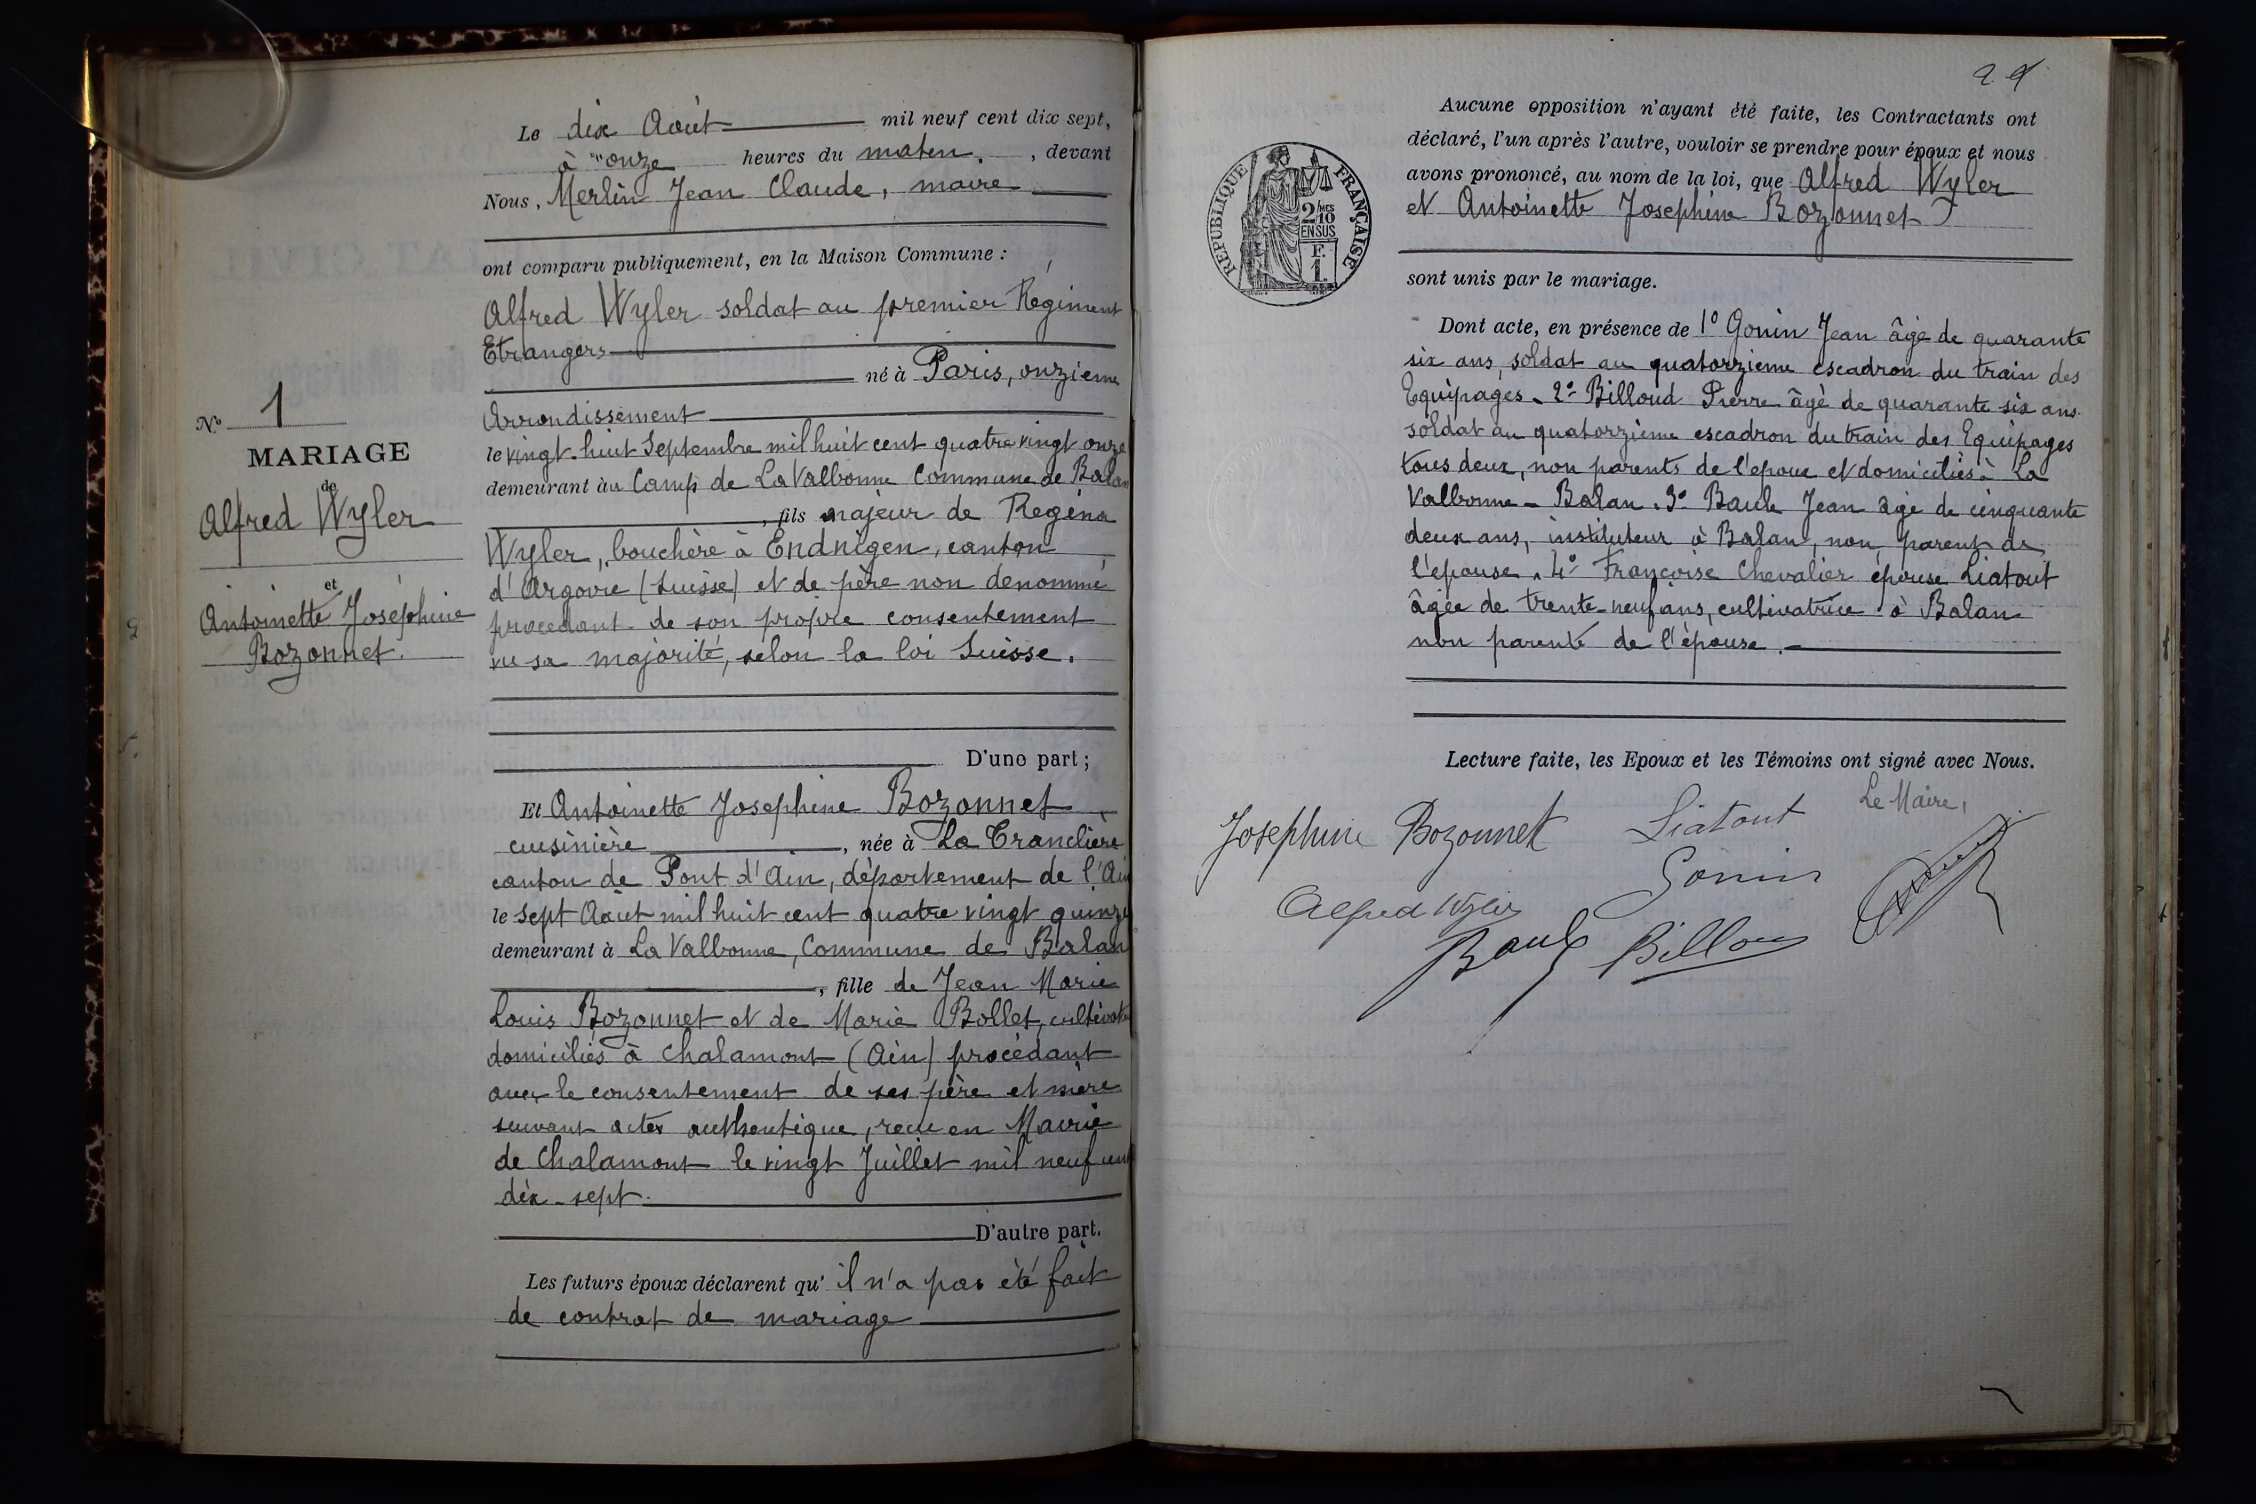 N° 1
MARIAGE
de
Alfred Wyler
et
Antoinette Joséphine
Bozonnet.
Le dix Août mil neuf cent dix sept,
à onze heures du maten. , devant
Nous, Merlin Jean Claude, maire
ont comparu publiquement, en la Maison Commune :
Alfred Wyler soldat au premier Régiment
Etrangers
né à Paris, onzième
Arrondissement
le vingt-huit Septembre mil huit cent quatre vingt onze
demeurant au Camp de La Valbonne Commune de Balan
, fils majeur de Regina
Wyler, bouchère à Endnigen, canton
d'Argovie (Suisse) et de père non denommé
procedant de son propre consentement
vu sa majorité, selon la loi Suisse.
D'une part ;
Et Antoinette Josephine Bozonnet
cuisinière , née à La Tranclière
canton de Pont d'Ain, département de l'Ain
le sept Août mil huit cent quatre vingt quinze
demeurant à La Valbonne, Commune de Balan
, fille de Jean Marie
Louis Bozonnet et de Marie Bollet,
domiciliés à Chalamont (Ain) procédant
avec le consentement de ses père et mère
suivant actes authentique, recu en Mairie
de Chalamont le vingt Juillet mil neuf cent
dix-sept.
D'autre part.
Les futurs époux déclarent qu' il n'a pas été fait
de contrat de mariage
Aucune opposition n'ayant été faite, les Contractants ont
déclaré, l'un après l'autre, vouloir se prendre pour époux et nous
avons prononcé, au nom de la loi, que Alfred Wyler
et Antoinette Josephine Bozonnet
sont unis par le mariage.
RÉPUBLIQUE FRANÇAISE
2/MES
10
EN SUS
F.
1.
Dont acte, en présence de 1° Gonin Jean âgé de quarante
six ans, soldat au quatorzième escadron du train des
Equipages - 2° Billoud Pierre âgé de quarante six ans
soldat au quatorzième escadron du train des Equipages
tous deux, non parents de l'epoux et domiciliés à La
Valbonne - Balan. 3° Baule Jean âgé de cinquante
deux ans, instituteur à Balan, non parent de
l'epouse. 4° Françoise Chevalier épouse Liatout
âgée de trente-neuf ans, cultivatrice à Balan
non parente de l'épouse.
Lecture faite, les Epoux et les Témoins ont signé avec Nous.
Le Maire,
Josephine Bozonnet Liatout
Gonin
Alfred Wyler
Baule Billoud